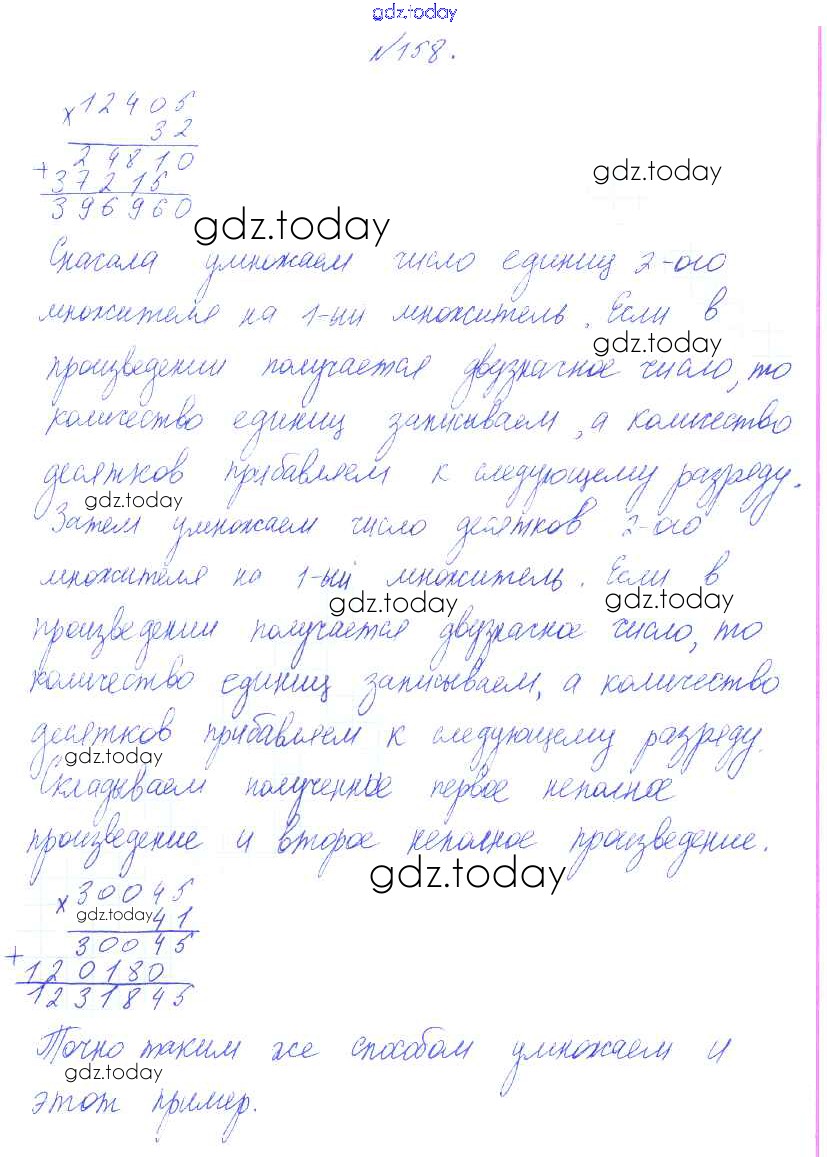 gdz.today
№158.
×12405
32
+ 24810
37215
396960
gdz.today
gdz.today
Сначала умножаем число единиц 2-ого
множителя на 1-ый множитель. Если в
gdz.today
произведении получается двузначное число, то
количество единиц записываем, а количество
десятков прибавляем к следующему разряду.
gdz.today
Затем умножаем число десятков 2-ого
множителя на 1-ый множитель. Если в
gdz.today
gdz.today
произведении получается двузначное число, то
количество единиц записываем, а количество
десятков прибавляем к следующему разряду.
gdz.today
Складываем полученное первое неполное
произведение и второе неполное произведение.
gdz.today
×30045
gdz.today
41
+ 30045
120180
1231845
Точно таким же способом умножаем и
gdz.today
этот пример.